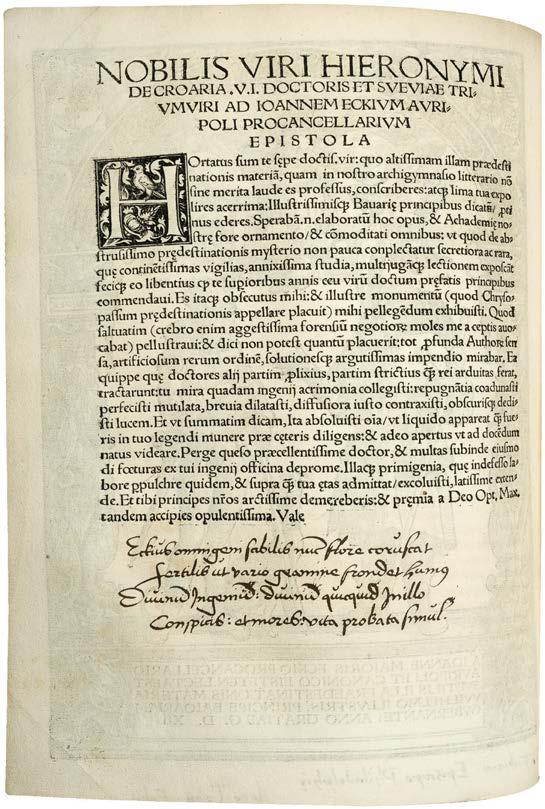 NOBILIS VIRI HIERONYMI
DE CROARIA .V.I. DOCTORIS ET SVEVIAE TRI-
VMVIRI AD IOANNEM ECKIVM AVRI-
POLI PROCANCELLARIVM
EPISTOLA
HOrtatus sum te sępe doctis. vir: quo altissimam illam prædesti
nationis materiā, quam in nostro archigymnasio litterario nō
sine merita laude es professus, conscriberes: atq̨ lima tua expo
lires acerrima: Illustrissimisq̨ Bauarię principibus dicatū/ ꝓti
nus ederes. Sperabā.n. elaboratū hoc opus, & Achademię no-
strę fore ornamento/ & cōmoditati omnibus: vt quod de abs
trusissimo prędestinationis mysterio non pauca complectatur secretiora ac rara,
quę continētissimas vigilias, annixissima studia, multijugāq̨ lectionem exposcāt
fecịq̨ eo libentius q̃ te supioribus annis ceu virū doctum pręfatis principibus
commendaui. Es itaq̨ obsecutus mihi: & illustre monumentū (quod Chryso-
passum prędestinationis appellare placuit) mihi pellegēdum exhibuisti. Quod
saltuatim (crebro enim aggestissima forensiū negotiorę moles me a ceptis auo-
cabat) pellustraui: & dici non potest quantū placuerit: tot ꝓfunda Authorę sen
sa, artificiosum rerum ordinē, solutionesq̨ argutissimas impendio mirabar. Ea
quippe quę doctores alij partim ꝓlixius, partim strictius q̃ rei arduitas ferat,
tractarunt: tu mira quadam ingenij acrimonia collegisti: repugnātia coadunasti
perfecisti mutilata, breuia dilatasti, diffusiora iusto contraxisti, obscurisq̨ dedi-
sti lucem. Et vt summatim dicam, Ita absoluisti oīa/ vt liquido appareat q̃ fue-
ris in tuo legendi munere præ cęteris diligens: & adeo apertus vt ad docēdum
natus videare. Perge queso præcellentissime doctor, & multas subinde eiusmo
di fœturas ex tui ingenij officina deprome. Illacq̨ primigenia, quę indefesso la-
bore ꝑpulchre quidem, & supra q̃ tua ętas admittat/ excoluisti, latissime exten-
de. Et tibi principes nr̄os arctissime demereberis: & pręmia a Deo Opt. Max.
tandem accipies opulentissima. Vale
Eckius omnigem sabilis nūc flore coruscat
Fertilis ut vario gramine frondet humus
Diuinū Ingeniū: diuinū quicquid In illo
Conspicis: et mores: vita probata simul.